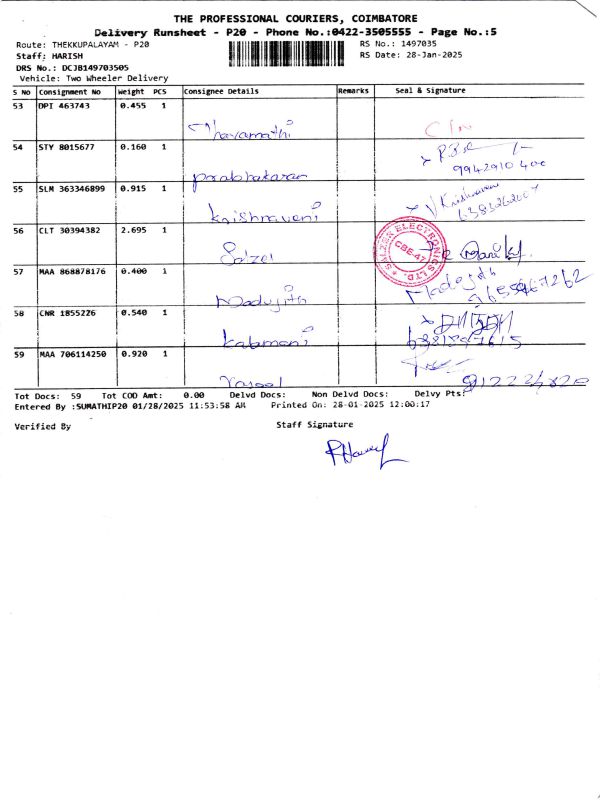 THE PROFESSIONAL COURIERS, COIMBATORE
Delivery Runsheet - P20 - Phone No.:0422-3505555 - Page No.:5
Route: THEKKUPALAYAM - P20 RS No.: 1497035
Staff: HARISH RS Date: 28-Jan-2025
DRS No.: DCJB149703505
Vehicle: Two Wheeler Delivery
S No Consignment No Weight PCS Consignee Details Remarks Seal & Signature
53 DPI 463743 0.455 1
Thavamathi
54 STY 8015677 0.160 1
prabhakaran 9942910400
55 SLM 363346899 0.915 1 Krishnaveni
krishnaveni
56 CLT 30394382 2.695 1
Salzer SALZER ELECTRONICS LTD. CBE-47
57 MAA 868878176 0.400 1 Madujith
Madujith 9659467262
58 CNR 1855226 0.540 1
kalamani
59 MAA 706114250 0.920 1
Tot Docs: 59 Tot COD Amt: 0.00 Delvd Docs: Non Delvd Docs: Delvy Pts:
Entered By :SUMATHIP20 01/28/2025 11:53:58 AM Printed On: 28-01-2025 12:00:17
Verified By Staff Signature